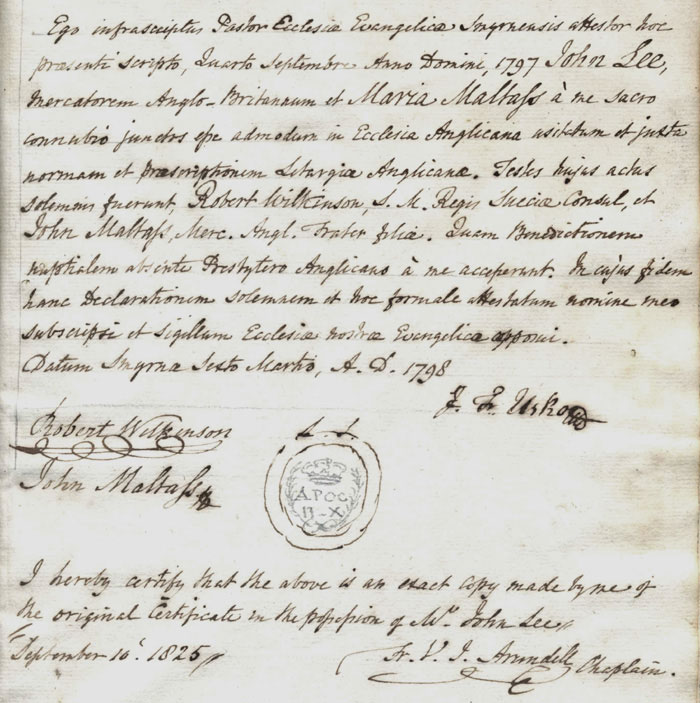 Ego infrascriptus Pastor Ecclesiæ Evangelicæ Smyrnensis attestor hoc
præsenti scripto, Quarto Septembre Anno Domini, 1797 John Lee,
mercatorem Anglo-Britannum et Maria Maltass à me sacro
connubio junctos esse admodum in Ecclesia Anglicana usitatum et juxta
normam et præscriptionem Liturgiæ Anglicanæ. Testes hujus actus
solemnis fuerunt, Robert Wilkinson, S. M. Regis Sueciæ Consul, et
John Maltass, Merc. Angl. Frater filiæ. Quam Benedictionem
nuptialem absente Presbytero Anglicano à me acceperunt. In cujus fidem
hanc Declarationem solemnem et hoc formale attestatum nomine meo
subscripsi et sigillum Ecclesiæ nostræ Evangelicæ apposui.
Datum Smyrnæ Sexto Martio, A. D. 1798
J. Fr. Usko
Robert Wilkinson
L. S.
John Maltass
APOC
II-X
I hereby certify that the above is an exact copy made by me of
the original Certificate in the possession of Mr. John Lee
September 10. 1825
Fr. V. J. Arundell Chaplain.